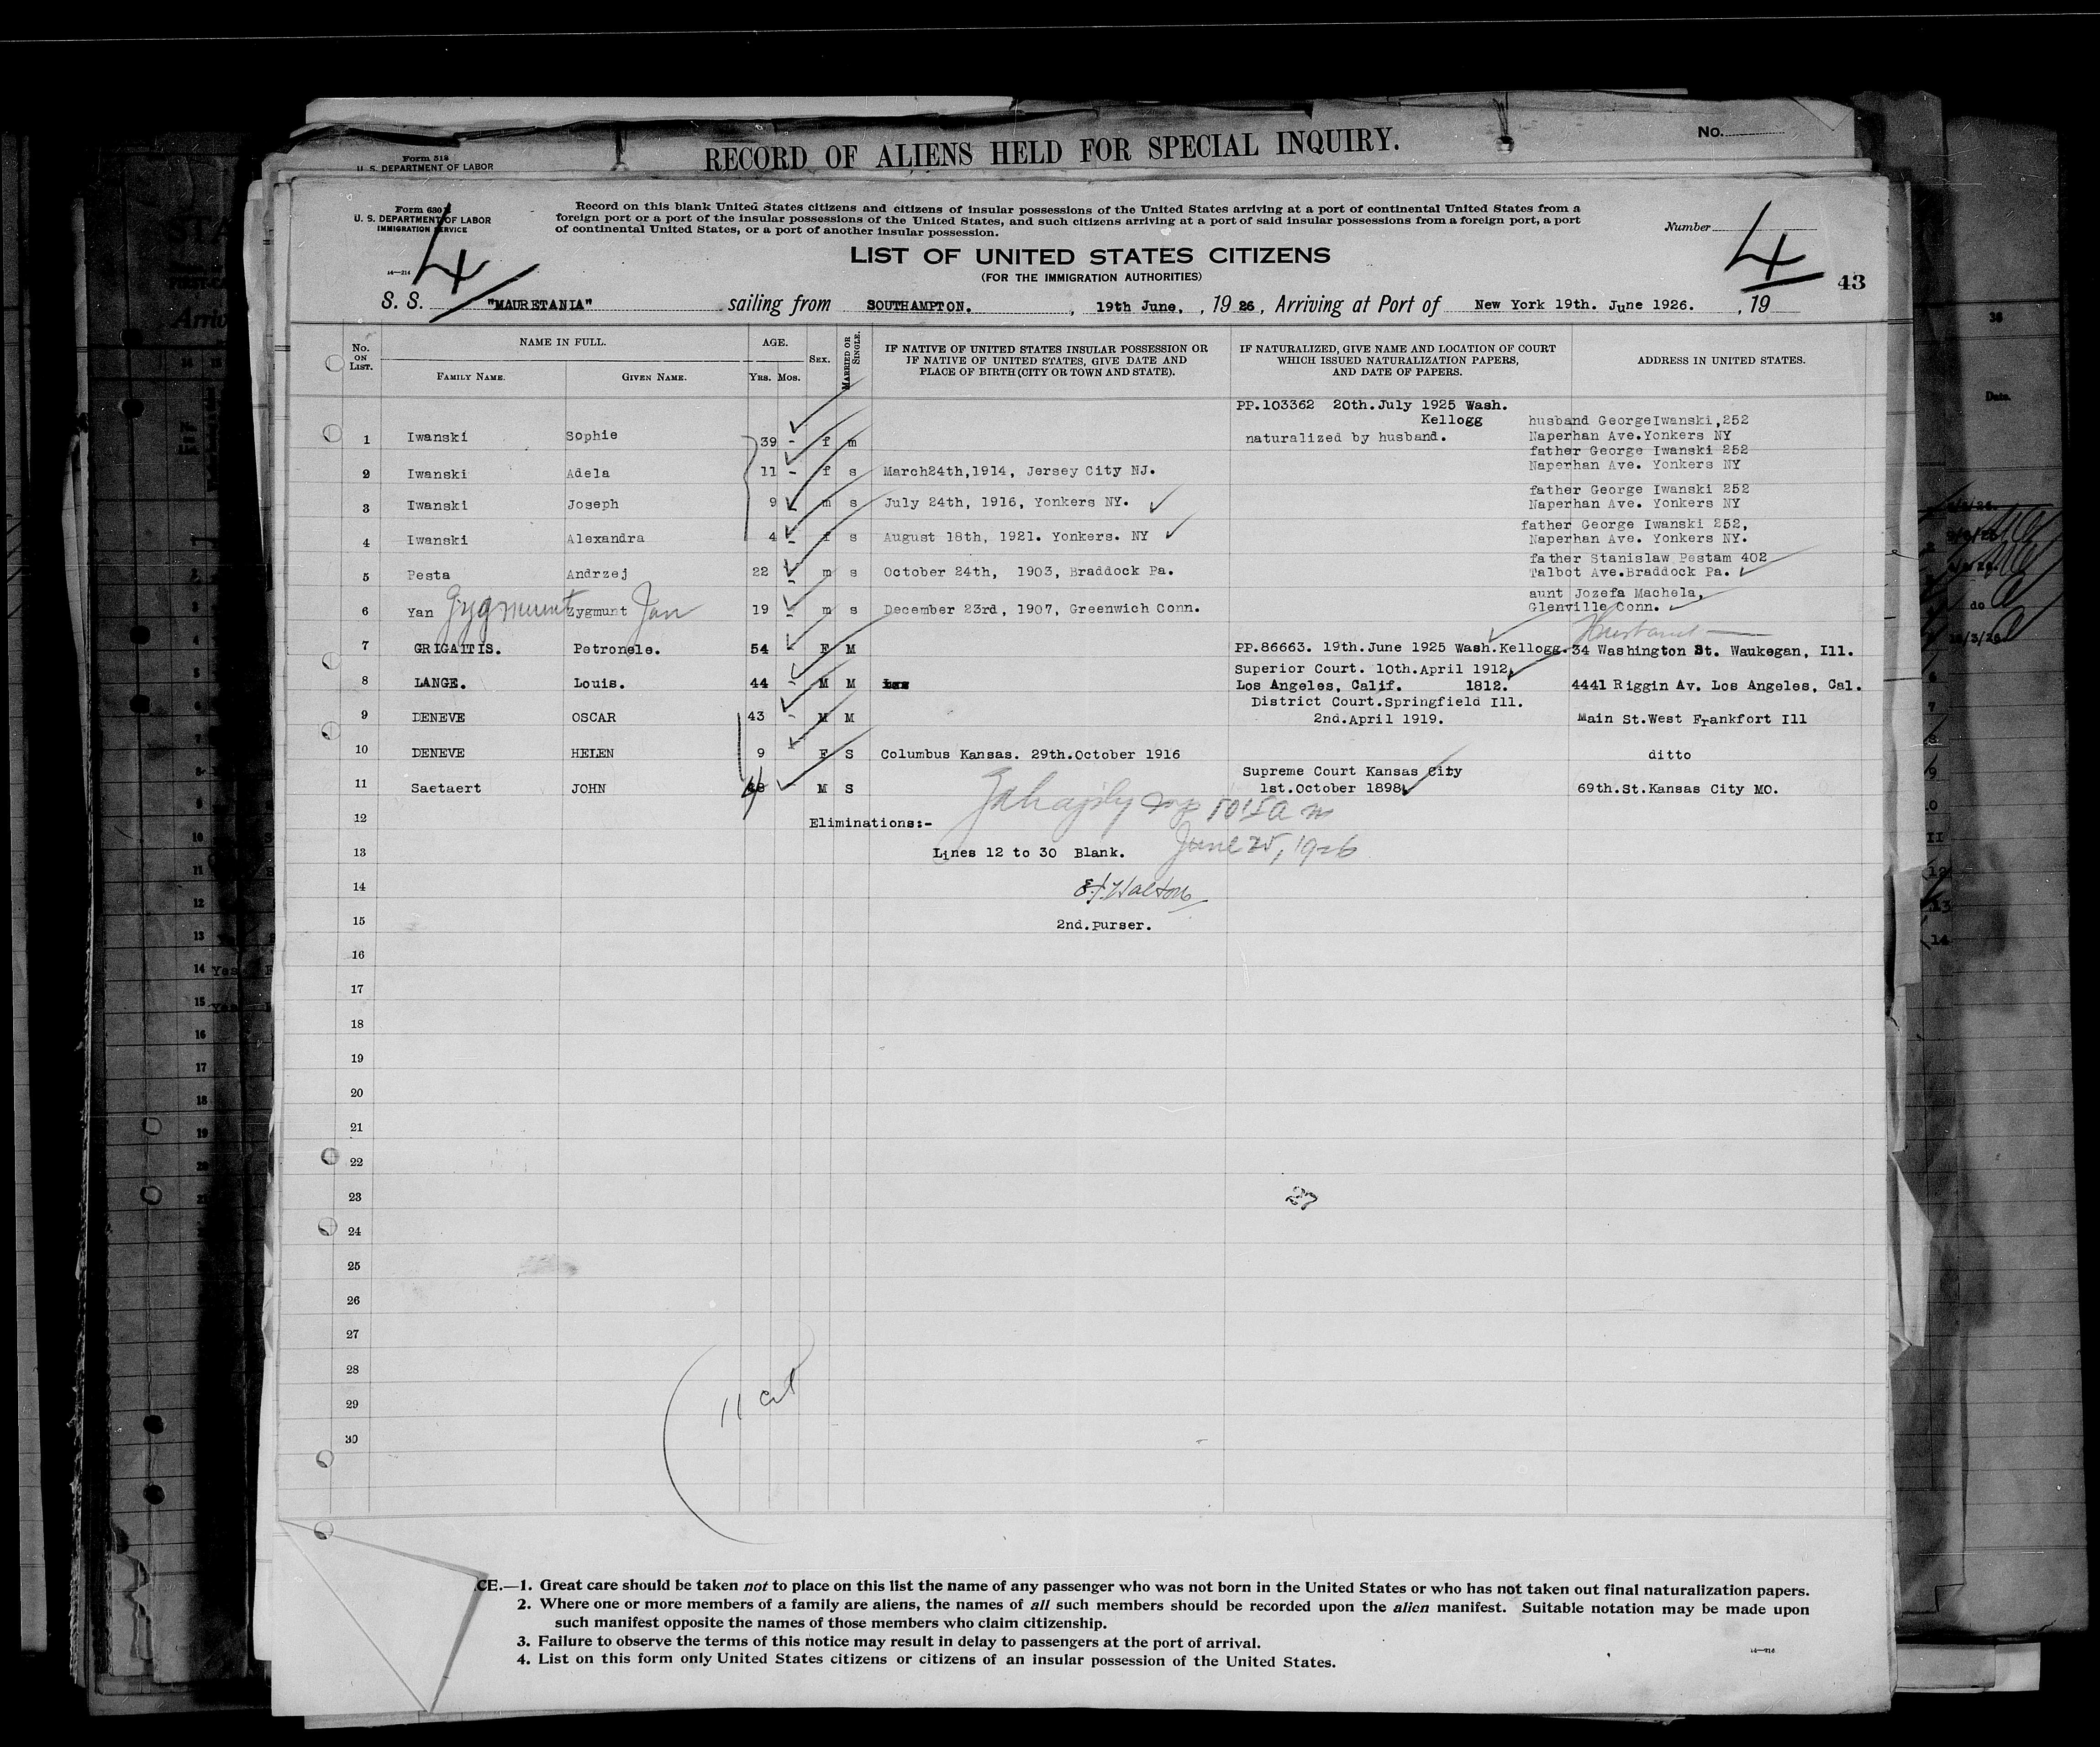 Form 518
U. S. DEPARTMENT OF LABOR
RECORD OF ALIENS HELD FOR SPECIAL INQUIRY.
No.
Form 630
U. S. DEPARTMENT OF LABOR
IMMIGRATION SERVICE
14—214
4
Record on this blank United States citizens and citizens of insular possessions of the United States arriving at a port of continental United States from a
foreign port or a port of the insular possessions of the United States, and such citizens arriving at a port of said insular possessions from a foreign port, a port
of continental United States, or a port of another insular possession.
LIST OF UNITED STATES CITIZENS
(FOR THE IMMIGRATION AUTHORITIES)
Number
4
43
S. S. "MAURETANIA" sailing from SOUTHAMPTON. , 19th June, , 19 26, Arriving at Port of New York 19th. June 1926. , 19
No. ON LIST. NAME IN FULL. FAMILY NAME. GIVEN NAME. AGE. YRS. MOS. SEX. MARRIED OR SINGLE. IF NATIVE OF UNITED STATES INSULAR POSSESSION OR IF NATIVE OF UNITED STATES, GIVE DATE AND PLACE OF BIRTH (CITY OR TOWN AND STATE). IF NATURALIZED, GIVE NAME AND LOCATION OF COURT WHICH ISSUED NATURALIZATION PAPERS, AND DATE OF PAPERS. ADDRESS IN UNITED STATES.
PP.103362 20th.July 1925 Wash.
Kellogg husband GeorgeIwanski,252
1 Iwanski Sophie 39 - f m naturalized by husband. Naperhan Ave.Yonkers NY
father George Iwanski 252
2 Iwanski Adela 11 - f s March24th,1914, Jersey City NJ. Naperhan Ave. Yonkers NY
father George Iwanski 252
3 Iwanski Joseph 9 m s July 24th, 1916, Yonkers NY. Naperhan Ave. Yonkers NY
father George Iwanski 252,
4 Iwanski Alexandra 4 - f s August 18th, 1921. Yonkers. NY Naperhan Ave. Yonkers NY.
father Stanislaw Pestam 402
5 Pesta Andrzej 22 - m s October 24th, 1903, Braddock Pa. Talbot Ave.Braddock Pa.
aunt Jozefa Machela,
6 Yan Zygmunt Zygmunt Jan 19 - m s December 23rd, 1907, Greenwich Conn. Glenville Conn.
Husband
7 GRIGAITIS. Petronele. 54 F M PP.86663. 19th.June 1925 Wash.Kellogg. 34 Washington St. Waukegan, Ill.
Superior Court. 10th.April 1912
8 LANGE. Louis. 44 - M M Los Angeles, Calif. 1812. 4441 Riggin Av. Los Angeles, Cal.
District Court.Springfield Ill.
9 DENEVE OSCAR 43 - M M 2nd.April 1919. Main St.West Frankfort Ill
10 DENEVE HELEN 9 F S Columbus Kansas. 29th.October 1916 ditto
Supreme Court Kansas City
11 Saetaert JOHN M S 1st.October 1898 69th.St.Kansas City MO.
12 Eliminations:-
13 Lines 12 to 30 Blank. June 25, 1926
14
15 2nd.Purser.
16
17
18
19
20
21
22
23 27
24
25
26
27
28
29
30
11
CE.—1. Great care should be taken not to place on this list the name of any passenger who was not born in the United States or who has not taken out final naturalization papers.
2. Where one or more members of a family are aliens, the names of all such members should be recorded upon the alien manifest. Suitable notation may be made upon
such manifest opposite the names of those members who claim citizenship.
3. Failure to observe the terms of this notice may result in delay to passengers at the port of arrival.
4. List on this form only United States citizens or citizens of an insular possession of the United States.